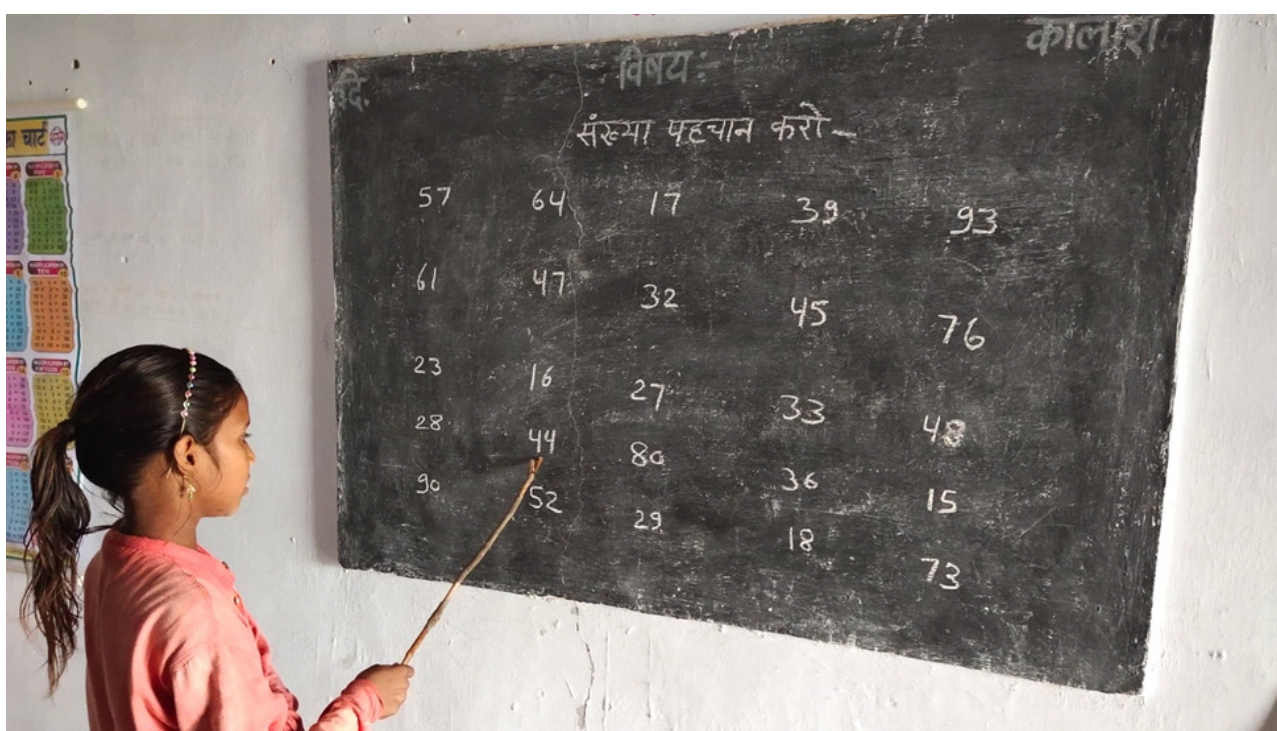 दि. विषय:- कालांश
संख्या पहचान करो-
57 64 17 39 93
61 47 32 45 76
23 16 27 33 48
28 44 80 36 15
90 52 29 18 73
चार्ट